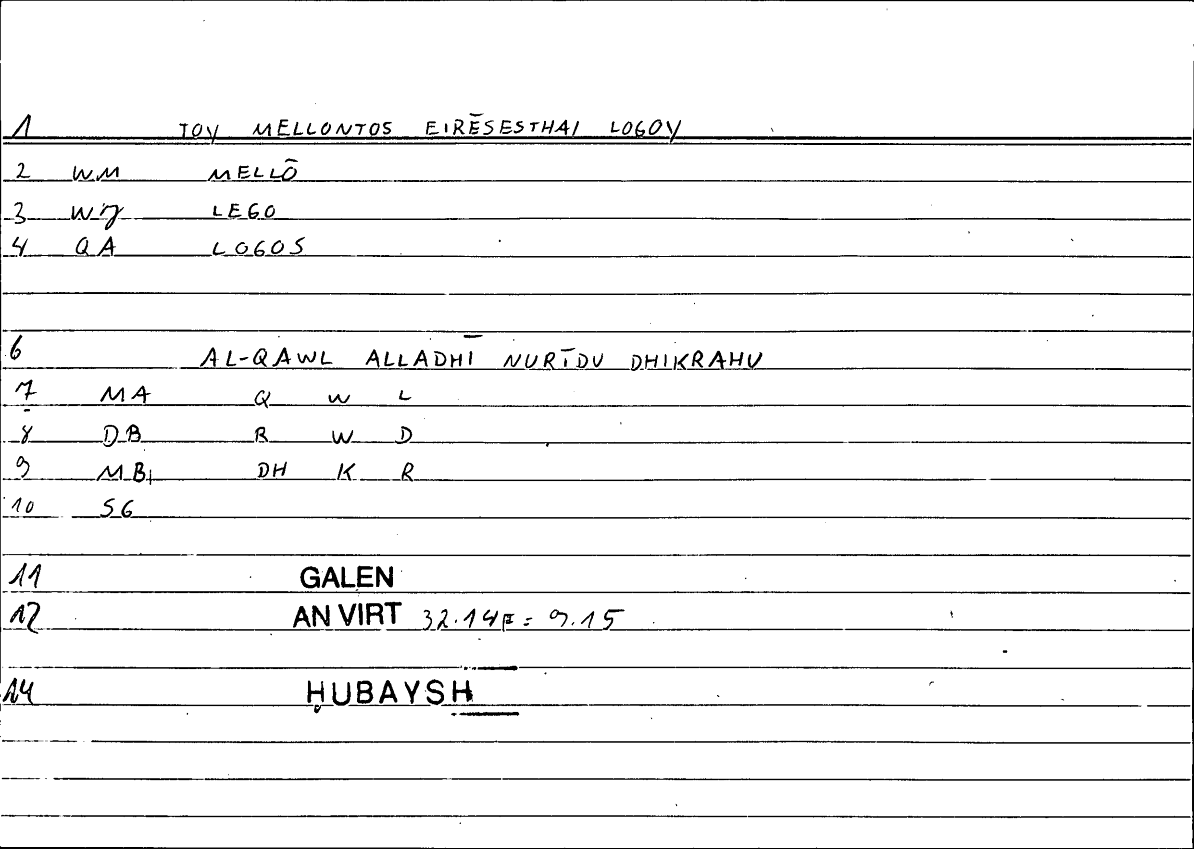 1 TOY MELLONTOS EIRĒSESTHAI LOGOY
2 WM MELLŌ
3 LEGO
4 QA LOGOS
6 AL-QAWL ALLADHĪ NURĪDU DHIKRAHU
7 MA Q W L
8 DB R W D
9 MB DH K R
10 SG
11 GALEN
12 AN VIRT 32.14 = 9.15
14 ḤUBAYSH